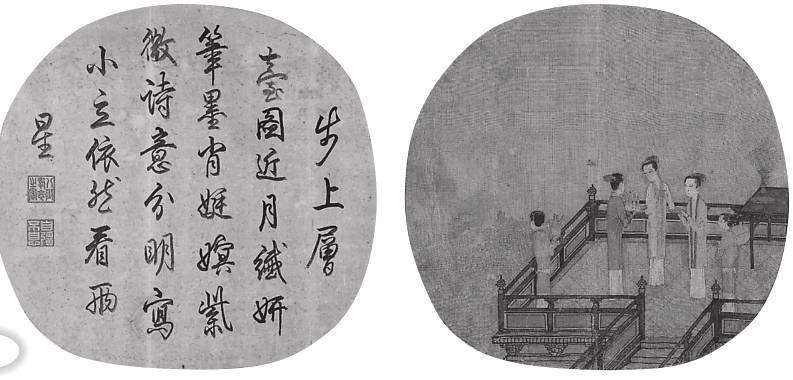 步上層
臺圖近月纖妍
筆墨肖娗嫇紫
微詩意分明寫
小立依然看兩
星